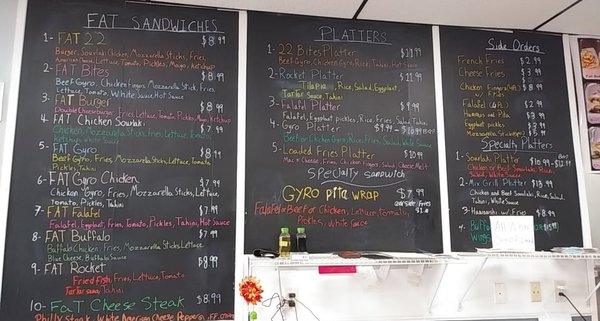 FAT SANDWICHES
1- FAT 22 $8.99
Burger, Souvlaki Chicken, Mozzarella Sticks, Fries,
American Cheese, Lettuce, Tomato, Pickles, Mayo, Ketchup
2- FAT Bites $8.99
Beef Gyro, Chicken Fingers, Mozzarella Stick, Fries,
Lettuce, Tomato, White Sauce, Hot Sauce
3- FAT Burger $8.99
Double Cheeseburger, Fries, Lettuce, Tomato, Pickles, Mayo, Ketchup
4- FAT Chicken Souvlaki $7.99
Chicken, Mozzarella Sticks, Fries, Lettuce, Tomato
Ketchup, White Sauce
5- FAT Gyro $8.99
Beef Gyro, Fries, Mozzarella Sticks, Lettuce, Tomato
Pickles, Tahini
6- FAT Gyro Chicken $7.99
Chicken Gyro, Fries, Mozzarella Sticks, Lettuce,
Tomato, Pickles, Tahini
7- FAT Falafel $7.99
Falafel, Eggplant, Fries, Tomato, Pickles, Tahini, Hot Sauce
8- FAT Buffalo $7.99
Buffalo Chicken, Fries, Mozzarella Sticks, Lettuce,
Blue Cheese, Buffalo Sauce
9- FAT Rocket $8.99
Fried Fish, Fries, Lettuce, Tomato
Tartar Sauce, Tahini
10- FAT Cheese Steak $8.99
Philly Steak, White American Cheese, Peppers,
PLATTERS
1- 22 Bites Platter $11.99
Beef Gyro, Chicken Gyro, Rice, Salad, Tahini, Hot Sauce
2- Rocket Platter $11.99
Tilapia, Rice, Salad, Eggplant,
Tartar Sauce, Tahini
3- Falafel Platter $9.99
Falafel, Eggplant, Pickles, Rice, Fries, Salad, Tahini
4- Gyro Platter $9.99 - $10.99
Beef or Chicken Gyro, Rice, Fries, Salad, White Sauce
5- Loaded Fries Platter $10.99
Mac n Cheese, Fries, Chicken Fingers, Salad, Cheese Melt
Specialty Sandwich
GYRO pita WRAP $7.99
Falafel or Beef or Chicken, Lettuce, Tomato,
Pickles, White Sauce
Side Orders
French Fries $2.99
Cheese Fries $3.99
Chicken Fingers
Falafel
Hummus and Pita
Eggplant, Pickles
Mozzarella Sticks
Specialty Platters
1- Souvlaki Platter $10.99
Chicken or Beef Souvlaki, Rice
Salad, White Sauce
2- Mix Grill Platter $13.99
Chicken and Beef Souvlaki, Rice, Salad,
Tahini, White Sauce
3- w/ Fries $8.99
4- Buffalo Wings